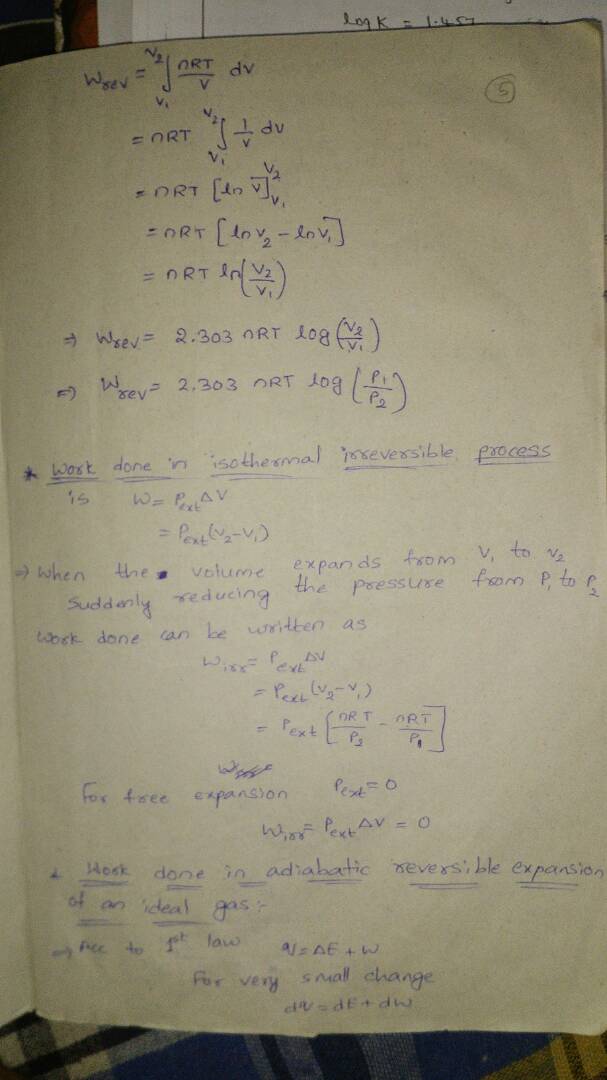 log K = 1.457
5
Wrev = ∫_{V₁}^{V₂} nRT/V dv
= nRT ∫_{V₁}^{V₂} 1/V dv
= nRT [ln V]_{V₁}^{V₂}
= nRT [ln V₂ - ln V₁]
= nRT ln(V₂/V₁)
⇒ Wrev = 2.303 nRT log (V₂/V₁)
⇒ Wrev = 2.303 nRT log (P₁/P₂)
* Work done in isothermal irreversible process
is W = Pext ΔV
= Pext (V₂-V₁)
⇒ When the volume expands from V₁ to V₂
Suddenly reducing the pressure from P₁ to P₂
Work done can be written as
Wirr = Pext ΔV
= Pext (V₂-V₁)
= Pext [nRT/P₂ - nRT/P₁]
For free expansion Pext = 0
Wirr = Pext ΔV = 0
* Work done in adiabatic reversible expansion
of an ideal gas :-
⇒ Acc to 1st law q = ΔE + W
For very small change
dq = dE + dW